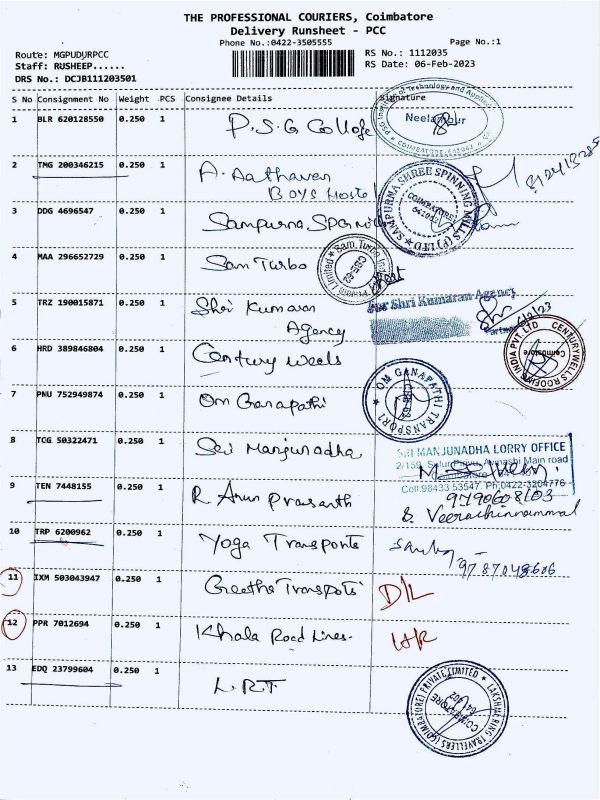 THE PROFESSIONAL COURIERS, Coimbatore
Delivery Runsheet - PCC
Phone No.:0422-3505555 Page No.:1
Route: MGPUDURPCC RS No.: 1112035
Staff: RUSHEEP...... RS Date: 06-Feb-2023
DRS No.: DCJB111203501
S No Consignment No Weight PCS Consignee Details Signature
1 BLR 620128550 0.250 1 P.S.G College
Neelambur
2 TMG 200346215 0.250 1 A. Aathavan
Boys Hostel
SAMPURNA SHREE SPINNING MILLS (P) LTD
COIMBATORE
3 DDG 4696547 0.250 1 Sampurna
4 MAA 296652729 0.250 1 Sam Turbo
5 TRZ 190015871 0.250 1 Shri Kumaran
Agency
For Shri Kumaran Agency
6 HRD 389846804 0.250 1 Century
CENTURYWELLS ROOFING INDIA PVT. LTD
Coimbatore
7 PNU 752949874 0.250 1 Om Ganapathi
OM GANAPATHI TRANSPORT
8 TCG 50322471 0.250 1 Sri Manjunadha
SRI MANJUNADHA LORRY OFFICE
Avinashi Main road
Cell:98433 53547. Ph:0422-3204776
9 TEN 7448155 0.250 1 R Arun Prasanth
S. Veerachinnammal
10 TRP 6200962 0.250 1 Yoga Transports
9787048606
11 IXM 503043947 0.250 1 Geetha Transpots D/L
12 PPR 7012694 0.250 1 Khala Road Lines-
13 EDQ 23799604 0.250 1 L.R.T
LAKSHMI RING TRAVELLERS (COIMBATORE) PRIVATE LIMITED
COIMBATORE